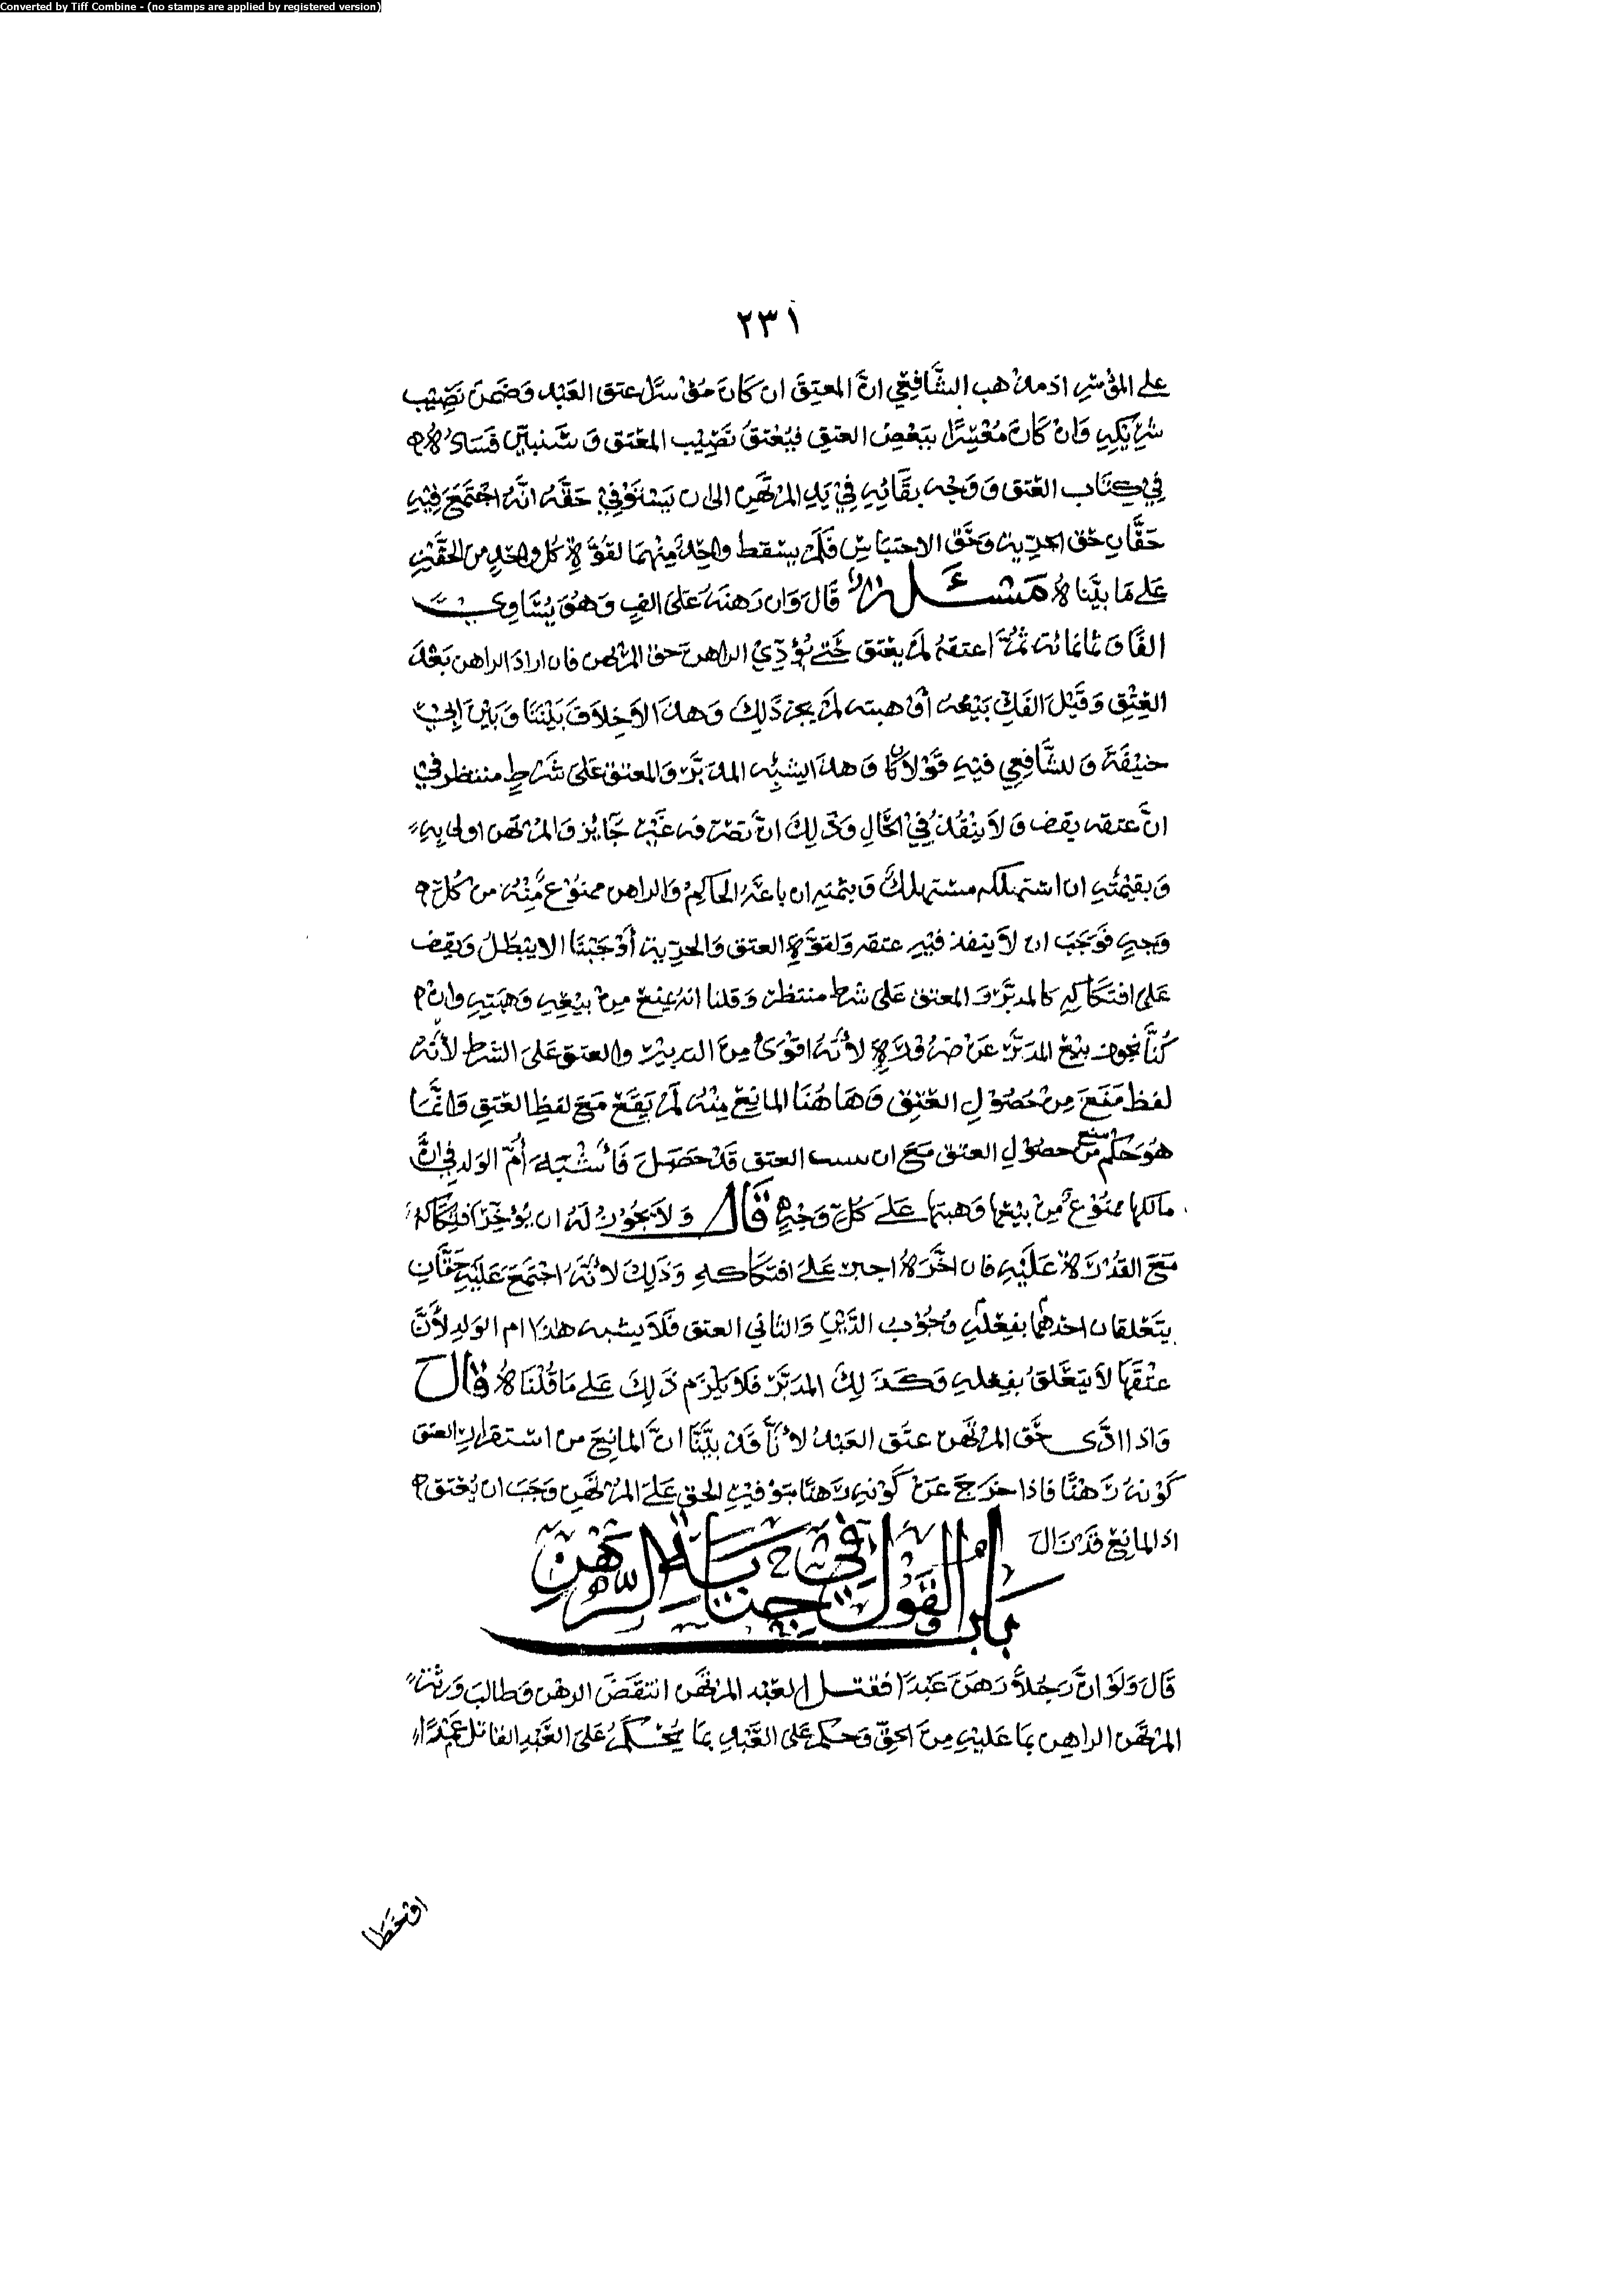 Converted by Tiff Combine - (no stamps are applied by registered version)
٢٣١
على المؤسر اذ مذهب الشَّافِعِي انَّ المعتِقَ ان كَانَ مُوْسرًا عتق العَبْد وَضَمِنَ نَصِيْب
شَرِيْكِهِ وَانْ كَانَ مُعْسِرًا ببَعْضِ العتِقِ فيُعْتَقُ نَصِيْب المعْتق وَسَنبيّن فَسَادُهُ
فِي كِتَاب العتق وَوَجْه بقَائِهِ فِيْ يَدِ المرْتَهِنِ الى ان يَسْتَوْفِيْ حَقَّهُ انَّهُ اجْتَمَعَ فِيْهِ
حَقَّانِ حَق الحرِّية وَحَق الاحتبَاسِ فَلَمْ يسْقط وَاحِدٌ مِنْهمَا لقوَّة كُل وَاحِدٍ من الحقَّيْنِ
عَلى مَا بيَّنَاهُ مَسْئَلة قَالَ وَان رَهنَهُ عَلى الفٍ وَهُوَ يُسَاوِي
الفًا وَثمانمائة ثُمَّ اعتقهُ لَمْ يعْتق حَتَّى يُؤدِّيَ الراهنُ حق المرتهن فان اراد الراهن بَعْدَ
العِتْقِ وَقَبْلَ الفَكِّ بَيْعهُ أوْ هبته لَمْ يجز ذَلِكَ وَهذا لاَ خِلاَفَ بَيْنَنَا وَبَيْنَ ابِي
حنيْفَةَ وَللشَّافِعِي فيْهِ قَوْلاَنِ وَهذا يشبه المدَبَّر وَالمعتق عَلى شَرْطٍ منتظر في
انَّ عتقه يقف وَلاَ يَنْفُذُ فِيْ الحَالِ وَذَلِكَ انَّ تصَرّفَه غَيْر جَايْز وَالمرْتَهن اولى بِهِ
وَبقيْمتِهِ ان اسْتهلكه مسْتهلكٌ وَبثمنِهِ ان باعَهُ الحَاكِمُ وَالراهن ممنُوْعٌ مِنْهُ من كُلِّ
وَجهٍ فَوَجَبَ ان لاَ ينفذ فيْهِ عتقه وَلقوَّةِ العتق وَالحرّية أوْجَبْنَا الا يبْطُلُ وَيقِف
عَلى افتكَاكِهِ كالمدبَّر وَالمعتق عَلى شرط منتظر وَقلنا انهُ يمنع مِنْ بيْعِهِ وَهبَتِهِ وان
كُنَّا نجوز بيْعَ المدَبَّر عَنْ ضرُوْرَةٍ لأنَّهُ اقوَى مِنَ التدبيْر والعتق عَلى الشرط لأنهُ
لفظ مَنَعَ مِنْ حُصُوْلِ العِتْقِ وَهَاهُنَا المانِعُ مِنْهُ لَمْ يَقَعْ مَعَ لفظِ العتقِ وَانَّمَا
هُوَ حُكم منع من حصُوْلِ العتق مَعَ ان سبب العتق قَدْ حَصَلَ فَأشْبَهَ أُمّ الوَلدِ فِي انَّ
مالكها ممنُوْعٌ مِنْ بيْعِهَا وَهبتها عَلَى كُلِّ وَجْهٍ قَال وَلاَ يجُوْزُ لَهُ ان يُؤخِّرَ افتِكَاكَهُ
مَعَ القدْرَةِ عَلَيْهِ فان اخَّرَهُ اجبر عَلى افتكاكهِ وَذَلِكَ لأنَّهُ اجْتمَعَ عَلَيْهِ حَقَّانِ
يتَعَلقان احَدهُما بفِعْلهِ وُجُوْبُ الدَّيْنِ وَالثاني العتق فَلاَ يشبه هذا ام الوَلدِ لأنَّ
عتْقَهَا لاَ يتعَلَّقُ بفِعْلهِ وَكَذَلِكَ المدَبَّر فَلاَ يَلْزَم ذَلِكَ عَلى مَا قُلْنَاهُ قَالَ
وَاذا ادَّى حَقَّ المرْتَهن عتَق العَبْدُ لأنَّا قَدْ بيَّنَّا انَّ المانِعَ من اسْتقرار العتق
كَوْنهُ رَهنًا فاذا خرَجَ عَنْ كَوْنِهِ رَهنًا بتوْفيْر الحق عَلى المرْتَهن وَجَبَ ان يُعْتق
اذ المانِعُ قَدْ زَالَ
بَاب القَوْل فِي جنَايَةِ الرَّهْنِ
قَالَ وَلَوْ انَّ رَجُلاً رَهَنَ عَبْدًا فقتل العَبْد المرْتَهن انتقَضَ الرهْن وَطالبَ وَرَثَة
المرْتَهن الراهن بمَا عَليْهِ مِنَ الحقِّ وَحكم عَلى العَبْدِ بمَا يُحْكَمُ عَلى العَبْدِ القاتل عَمْدًا
اوْ خَطَا